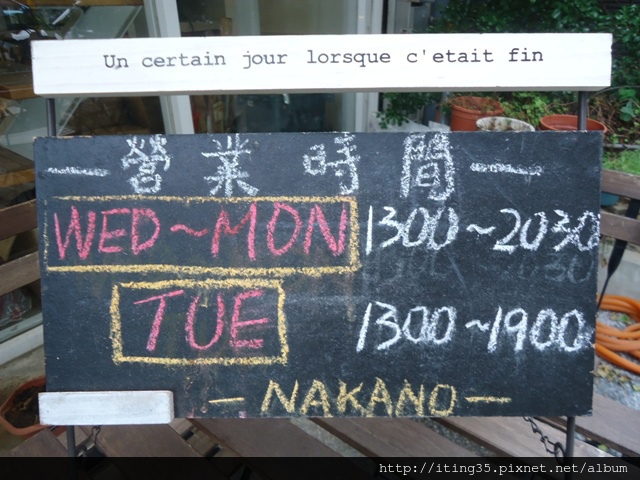 Un certain jour lorsque c'etait fin
—營業時間—
WED~MON 1300~2030
TUE 1300~1900
—NAKANO—
http://iting35.pixnet.net/album